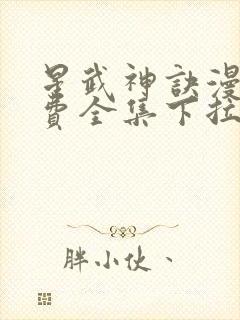 星武神訣漫
費全集下拉
胖小伙、